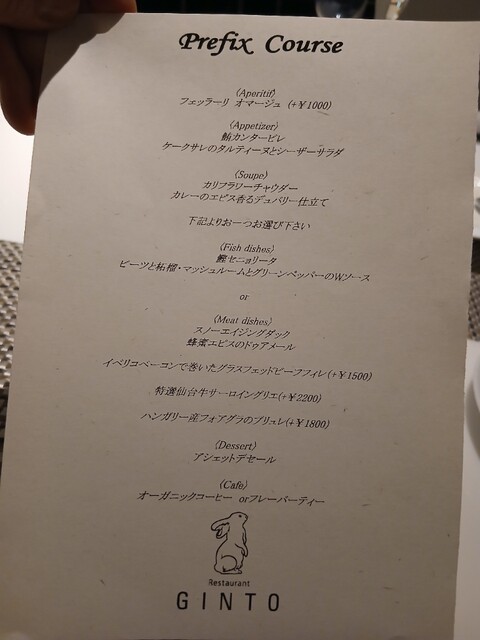 Prefix Course
〈Aperitif〉
フェッラーリ オマージュ (+¥1000)
〈Appetizer〉
鮪カンタービレ
ケークサレのタルティーヌとシーザーサラダ
〈Soupe〉
カリフラワーチャウダー
カレーのエピス香るデュバリー仕立て
下記よりお一つお選び下さい
〈Fish dishes〉
鰹セニョリータ
ビーツと柘榴・マッシュルームとグリーンペッパーのWソース
or
〈Meat dishes〉
スノーエイジングダック
蜂蜜エピスのドゥアメール
イベリコベーコンで巻いたグラスフェッドビーフフィレ(+¥1500)
特選仙台牛サーロイングリエ(+¥2200)
ハンガリー産フォアグラのブリュレ(+¥1800)
〈Dessert〉
アシェットデセール
〈Cafe〉
オーガニックコーヒー orフレーバーティー
Restaurant
GINTO